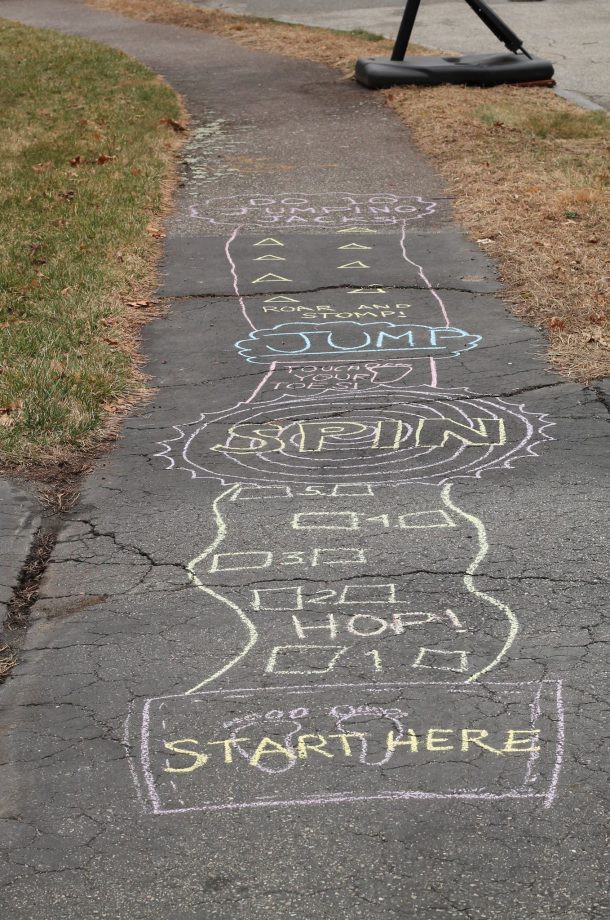 DO 10
JUMPING
JACKS!
ROAR AND
STOMP!
JUMP
TOUCH
YOUR
TOES!
SPIN
5
4
3
2
HOP!
1
START HERE